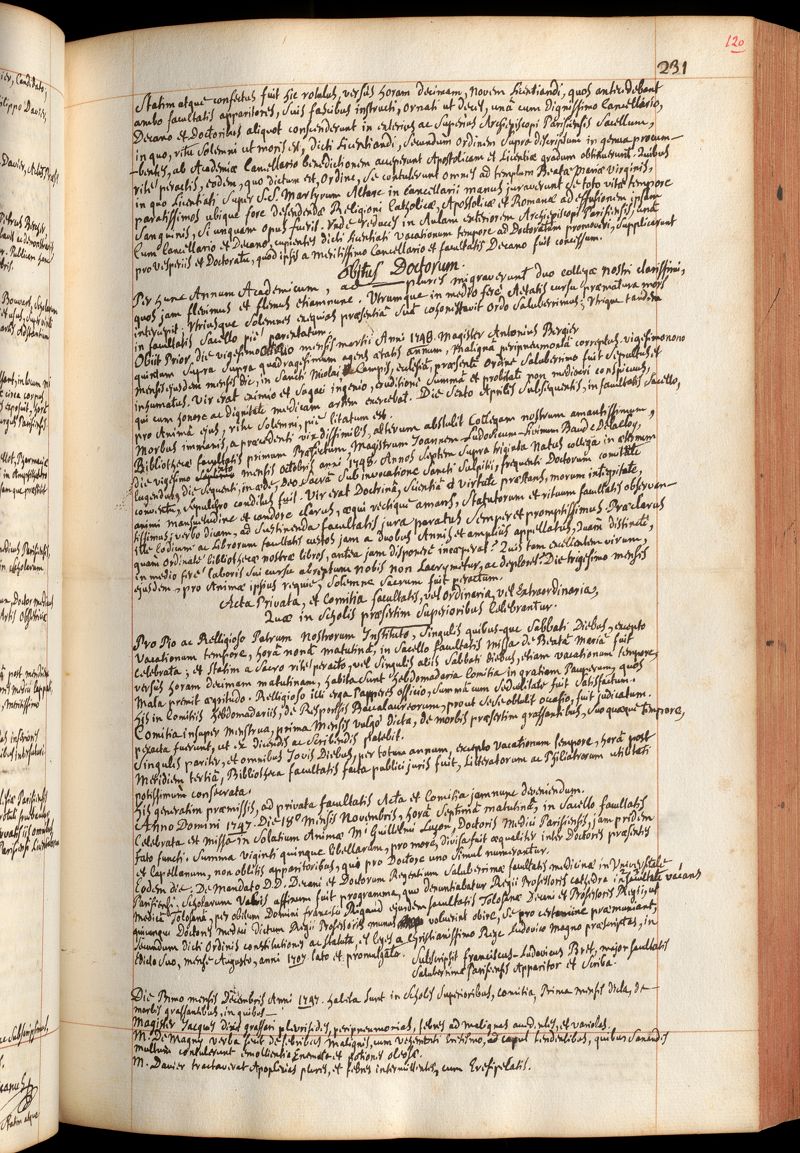 120
231
Statim atque confectus fuit hic rotulus, versùs horam decimam, novem licentiandi, quos antecedebant
ambo facultatis apparitores, suis fascibus instructi, ornati ut decet, unà cum dignissimo Cancellario,
Decano et Doctoribus aliquot conscenderunt in exterius ac superius Archiepiscopi Parisiensis Sacellum,
in quo, ritu solemni ut moris est, dicti licentiandi, secundum ordinem supra descriptum in genua procum-
bentes, ab Academiæ Cancellario benedictionem acceperunt Apostolicam et licentiæ gradum obtinuerunt. Quibus
rite peractis, eodem, quo dictum est, ordine, se contulerunt omnes ad templum Beatæ Mariæ Virginis,
in quo licentiati super S.S. Martyrum Altare in Cancellarii manus juraverunt se toto vitæ tempore
paratissimos ubique fore defendendæ Religioni Catholicæ, Apostolicæ et Romanæ ad effusionem ipsam
sanguinis, si unquam opus fuerit. Unde reduces in Aulam exteriorem Archiepiscopi Parisiensis, unà
cum Cancellario et Decano, cupientes dicti licentiati vacationum tempore ad Doctoratum promoveri, supplicarunt
pro vesperiis et Doctoratu, quod ipsis a meritissimo Cancellario et facultatis Decano fuit concessum.
Obitus Doctorum.
Per hunc Annum Academicum, ad plures migraverunt duo collegæ nostri clarissimi,
quos jam flevimus et flemus etiamnunc. Utrumque in medio ferè Aetatis cursu præmatura mors
intercepit. Utriusque solemnes exequias præsentiâ suâ cohonestavit ordo saluberrimus; Utrique tandem
in facultatis Sacello piè parentatum.
Obiit Prior, die vigesimo mensis martii Anni 1748. Magister Antonius Bergier
quintum supra quadragesimum agens ætatis annum, malignâ peripneumoniâ correptus. vigesimo nono
mensis ejusdem mensis die, in Sancti Nicolai à Campis, ecclesiâ, præsente ordine Saluberrimo fuit sepultus et
inhumatus. Vir erat eximio et sagaci ingenio, eruditione summâ et probitate non mediocri conspicuus,
qui cum honore ac dignitate medicam artem exercebat. Die sexto Aprilis subsequentis, in facultatis Sacello,
pro Animâ ejus, ritu solemni, piè litatum est.
Morbus immanis, a præcedenti vix dissimilis, alterum abstulit Collegam nostrum amantissimum,
Bibliothecæ facultatis primum Præfectum, Magistrum Joannem-Ludovicum-Livinum Baude Delacloy,
die vigesimo mensis octobris anni 1748. Annos septem supra triginta natus collega in æternum
lugendus, die sequenti, in æde, Deo sacrâ sub invocatione Sancti Sulpitii, frequenti Doctorum comitatu
convectus, sepulchro conditus fuit. Vir erat Doctrinâ, scientiâ et virtute præstans, morum integritate,
animi mansuetudine et candore clarus, æqui rectique amans, statutorum et rituum facultatis observan-
tissimus, verbo dicam, ad sustinenda facultatis jura paratus semper et promptissimus. Præclarus
ille codicum ac librorum facultatis custos jam a duobus Annis et amplius appellatus, quàm distinctè,
quam ordinatè Bibliothecæ nostræ libros, antea jam disponere incœperat! Quis tam excellentem virum,
in medio ferè laboris sui cursu abreptum nobis non lacrymetur, ac deploret? Die trigesimo mensis
ejusdem, pro Animæ ipsius requie, solemne sacrum fuit peractum.
Acta Privata, et Comitia facultatis, vel Ordinaria, vel Extraordinaria,
Quæ in Scholis præsertim Superioribus Celebrantur.
Pro Pio ac Religioso Patrum Nostrorum Instituto, singulis quibus-que Sabbati Diebus, excepto
vacationum tempore, horâ nonâ matutinâ, in Sacello facultatis Missa de Beatâ Mariâ fuit
celebrata; et statim a Sacro ritè peracto, vel singulis aliis Sabbati diebus, etiam vacationum tempore,
versùs horam decimam matutinam, habita sunt hebdomadaria Comitia in gratiam Pauperum, quos
mala premit ægritudo. Religioso illi erga Pauperes officio, summâ cum sedulitate fuit satisfactum.
His in Comitiis hebdomadariis, de Responsis Baccalaureorum, prout sese obtulit occasio, fuit judicatum.
Comitia insuper menstrua, prima Mensis vulgo dicta, de morbis præsertim grassantibus, suo quæque tempore,
peracta fuerunt, ut ex dicendis ac scribendis patebit.
Singulis pariter, et omnibus Jovis Diebus, per totum annum, excepto vacationum tempore, horâ post
Meridiem tertiâ, Bibliotheca facultatis facta publici juris fuit, litteratorum ac Philiatrorum utilitati
potissimùm consecrata.
His generatim præmissis, ad privata facultatis Acta et Comitia jamnunc deveniendum.
Anno Domini 1747. Die 18º mensis Novembris, horâ septimâ matutinâ, in Sacello facultatis
Celebrata est missa in solatium Animæ Mi Guillelmi Luzon, Doctoris Medici Parisiensis, jam pridem
fato functi. Summa viginti quinque libellarum, pro more, divisa fuit æqualiter inter Doctores præsentes
et Capellanum, non oblitis apparitoribus, qui pro Doctore uno simul numerantur.
Eodem die, De Mandato D.D. Decani et Doctorum Regentium Saluberrimæ facultatis medicinæ in Universitate
Parisiensi, Scholarum Valvis affixum fuit programma, quo denuntiabatur Regii Professoris cathedra in facultate vacans
Medicâ Tolosanâ, per obitum Domini Francisci Rigaud ejusdem facultatis Tolosanæ Decani et Professoris Regii, ut
quicunque Doctores medici dictum Regii Professoris munus voluerint obire, se pro certamine præmuniant,
secundum dicti Ordinis constitutiones ac statuta, et leges a Christianissimo Rege Ludovico Magno præscriptas, in
Edicto suo, mense Augusto, anni 1707 lato et promulgato. Subscripsit Franciscus-Ludovicus Bret, major facultatis
Saluberrimæ Parisiensis Apparitor et Scriba.
Die Primo mensis Decembris Anni 1747. habita sunt in Scholis Superioribus, comitia, Prima mensis dicta, de
morbis grassantibus, in quibus
Magister Jacques dixit grassari pleuritides, peripneumonias, febres ad malignas accedentes, et variolas.
M. De Magny verba fecit de febribus malignis, cum vehementi Encresmo, ad caput tendentibus, quibus sanandis
multum contulerunt emollientia Enemata et potiones oleosæ.
M. Davier tractaverat Apoplexias plures, et febres intermittentes, cum Erysipelatis.